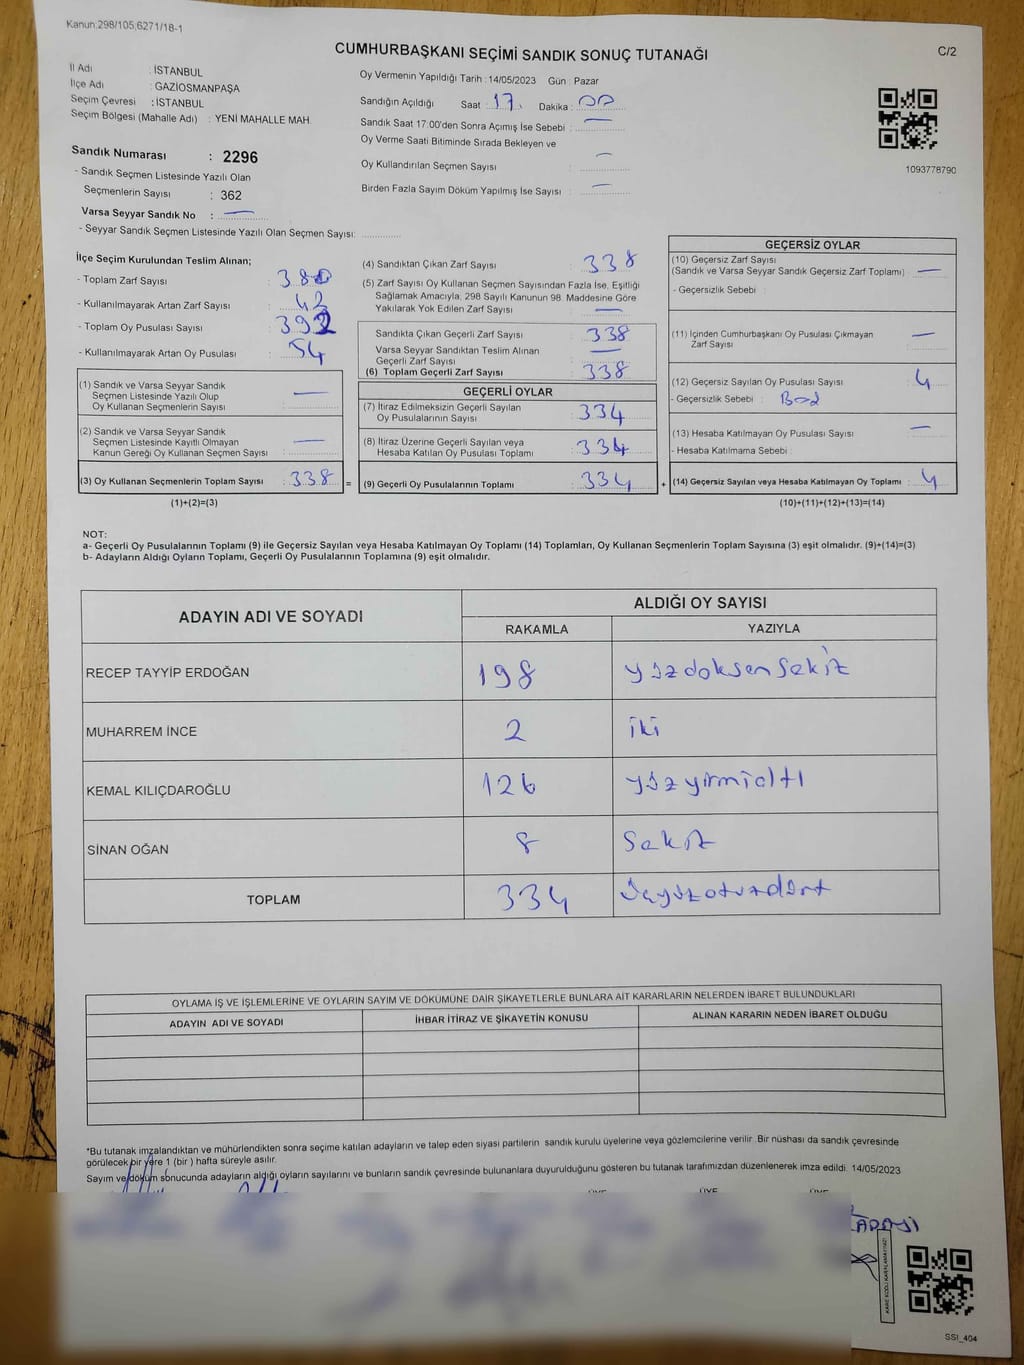 Kanun:298/105,6271/18-1
CUMHURBAŞKANI SEÇİMİ SANDIK SONUÇ TUTANAĞI
C/2
İl Adı : İSTANBUL
İlçe Adı : GAZİOSMANPAŞA
Seçim Çevresi : İSTANBUL
Seçim Bölgesi (Mahalle Adı) : YENİ MAHALLE MAH.
Sandık Numarası : 2296
- Sandık Seçmen Listesinde Yazılı Olan
Seçmenlerin Sayısı : 362
Varsa Seyyar Sandık No : —
- Seyyar Sandık Seçmen Listesinde Yazılı Olan Seçmen Sayısı:
Oy Vermenin Yapıldığı Tarih : 14/05/2023 Gün : Pazar
Sandığın Açıldığı Saat : 17. Dakika : 00
Sandık Saat 17:00'den Sonra Açımış İse Sebebi : —
Oy Verme Saati Bitiminde Sırada Bekleyen ve
Oy Kullandırılan Seçmen Sayısı : —
Birden Fazla Sayım Döküm Yapılmış İse Sayısı : —
1093778790
İlçe Seçim Kurulundan Teslim Alınan;
- Toplam Zarf Sayısı : 380
- Kullanılmayarak Artan Zarf Sayısı : 42
- Toplam Oy Pusulası Sayısı : 392
- Kullanılmayarak Artan Oy Pusulası : 54
(1) Sandık ve Varsa Seyyar Sandık
Seçmen Listesinde Yazılı Olup
Oy Kullanan Seçmenlerin Sayısı : —
(2) Sandık ve Varsa Seyyar Sandık
Seçmen Listesinde Kayıtlı Olmayan
Kanun Gereği Oy Kullanan Seçmen Sayısı : —
(3) Oy Kullanan Seçmenlerin Toplam Sayısı : 338 =
(1)+(2)=(3)
(4) Sandıktan Çıkan Zarf Sayısı : 338
(5) Zarf Sayısı Oy Kullanan Seçmen Sayısından Fazla İse, Eşitliği
Sağlamak Amacıyla, 298 Sayılı Kanunun 98. Maddesine Göre
Yakılarak Yok Edilen Zarf Sayısı : —
Sandıkta Çıkan Geçerli Zarf Sayısı : 338
Varsa Seyyar Sandıktan Teslim Alınan
Geçerli Zarf Sayısı : —
(6) Toplam Geçerli Zarf Sayısı : 338
GEÇERLİ OYLAR
(7) İtiraz Edilmeksizin Geçerli Sayılan
Oy Pusulalarının Sayısı : 334
(8) İtiraz Üzerine Geçerli Sayılan veya
Hesaba Katılan Oy Pusulası Toplamı : 334
(9) Geçerli Oy Pusulalarının Toplamı : 334 +
GEÇERSİZ OYLAR
(10) Geçersiz Zarf Sayısı
(Sandık ve Varsa Seyyar Sandık Geçersiz Zarf Toplamı) : —
- Geçersizlik Sebebi :
(11) İçinden Cumhurbaşkanı Oy Pusulası Çıkmayan
Zarf Sayısı : —
(12) Geçersiz Sayılan Oy Pusulası Sayısı : 4
- Geçersizlik Sebebi :
(13) Hesaba Katılmayan Oy Pusulası Sayısı : —
- Hesaba Katılmama Sebebi :
(14) Geçersiz Sayılan veya Hesaba Katılmayan Oy Toplamı : 4
(10)+(11)+(12)+(13)=(14)
NOT:
a- Geçerli Oy Pusulalarının Toplamı (9) ile Geçersiz Sayılan veya Hesaba Katılmayan Oy Toplamı (14) Toplamları, Oy Kullanan Seçmenlerin Toplam Sayısına (3) eşit olmalıdır. (9)+(14)=(3)
b- Adayların Aldığı Oyların Toplamı, Geçerli Oy Pusulalarının Toplamına (9) eşit olmalıdır.
ADAYIN ADI VE SOYADI
ALDIĞI OY SAYISI
RAKAMLA YAZIYLA
RECEP TAYYİP ERDOĞAN 198 yüzdoksensekiz
MUHARREM İNCE 2 iki
KEMAL KILIÇDAROĞLU 126 yüzyirmialtı
SİNAN OĞAN 8 Sekiz
TOPLAM 334 üçyüzotuzdört
OYLAMA İŞ VE İŞLEMLERİNE VE OYLARIN SAYIM VE DÖKÜMÜNE DAİR ŞİKAYETLERLE BUNLARA AİT KARARLARIN NELERDEN İBARET BULUNDUKLARI
ADAYIN ADI VE SOYADI İHBAR İTİRAZ VE ŞİKAYETİN KONUSU ALINAN KARARIN NEDEN İBARET OLDUĞU
*Bu tutanak imzalandıktan ve mühürlendikten sonra seçime katılan adayların ve talep eden siyasi partilerin sandık kurulu üyelerine veya gözlemcilerine verilir. Bir nüshası da sandık çevresinde
görülecek bir yere 1 (bir ) hafta süreyle asılır.
Sayım ve döküm sonucunda adayların aldığı oyların sayılarını ve bunların sandık çevresinde bulunanlara duyurulduğunu gösteren bu tutanak tarafımızdan düzenlenerek imza edildi. 14/05/2023
ÜYE ÜYE ÜYE
SSI_404